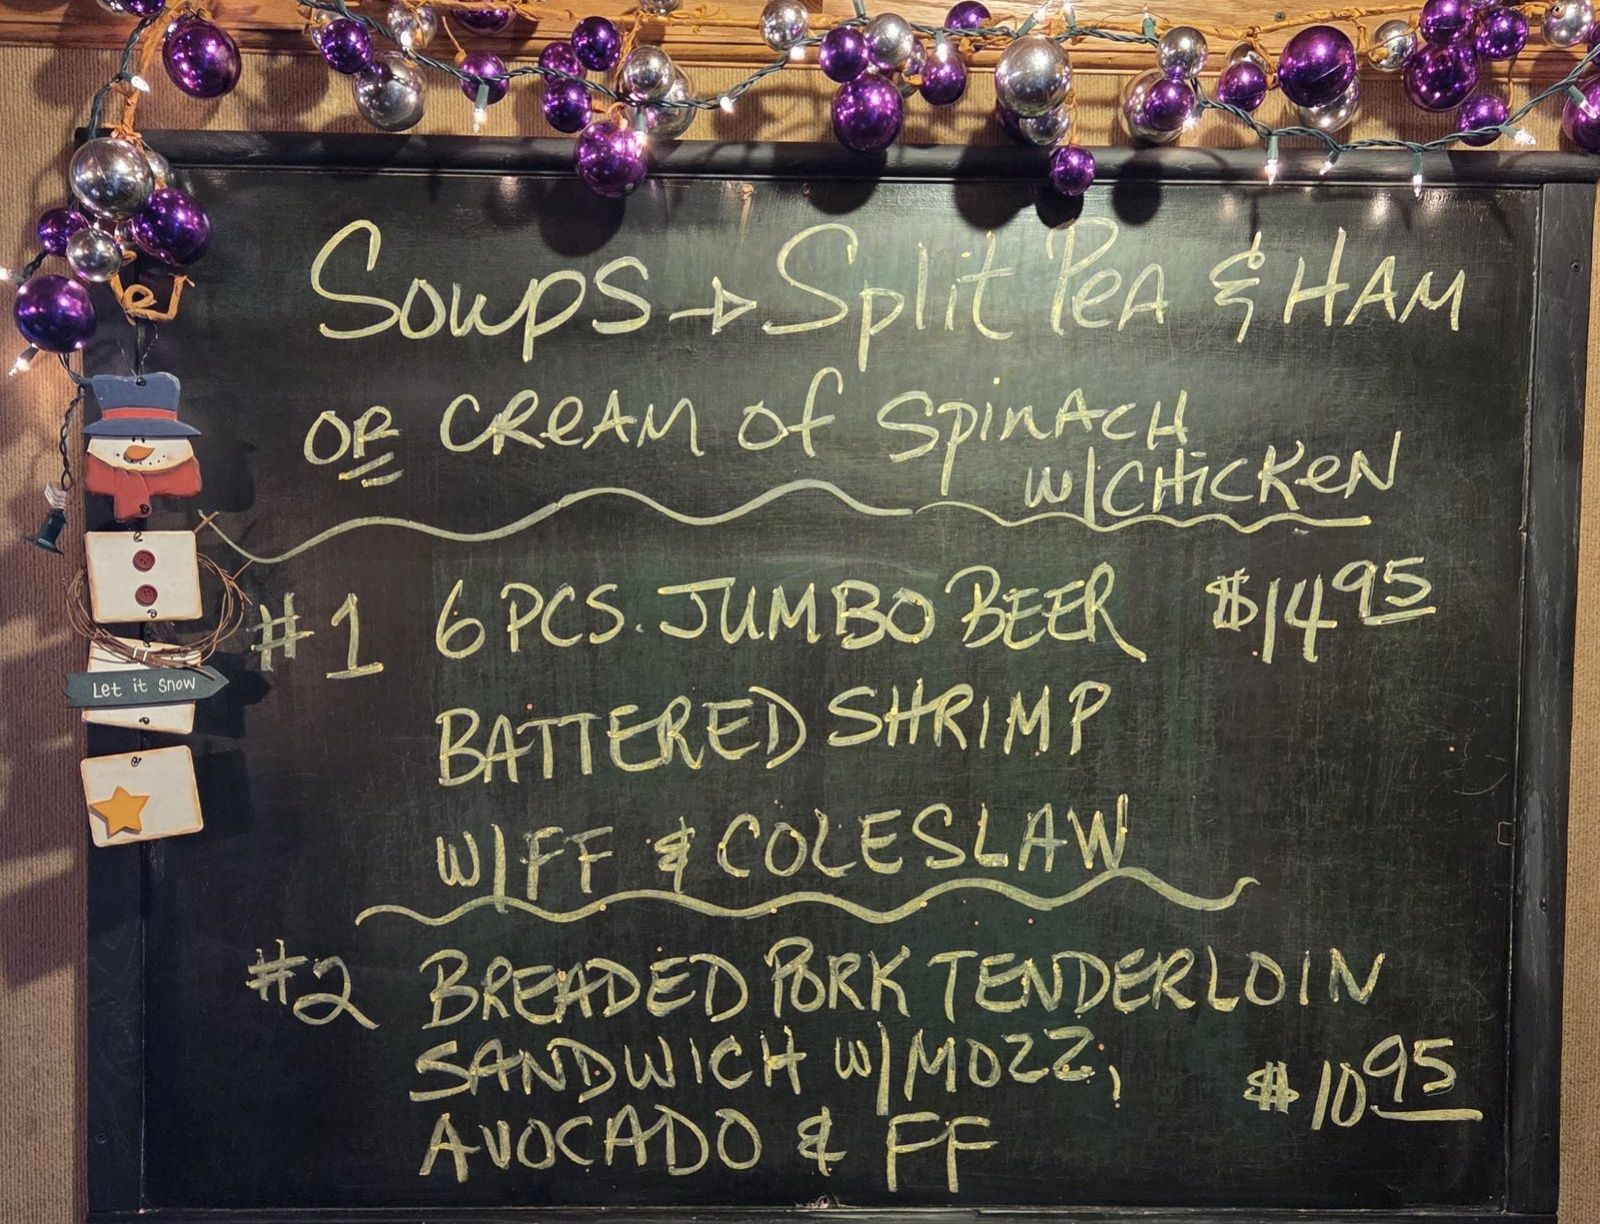 Soups → Split Pea & HAM
OR CReAM of SpinACH
w/CHiCKeN
#1 6 PCS. JUMBO BEER $14 95
BATTERED SHRIMP
W/FF & COLESLAW
#2 BREADED PORK TENDERLOIN
SANDWICH W/MOZZ,
AVOCADO & FF $10 95
Let it snow